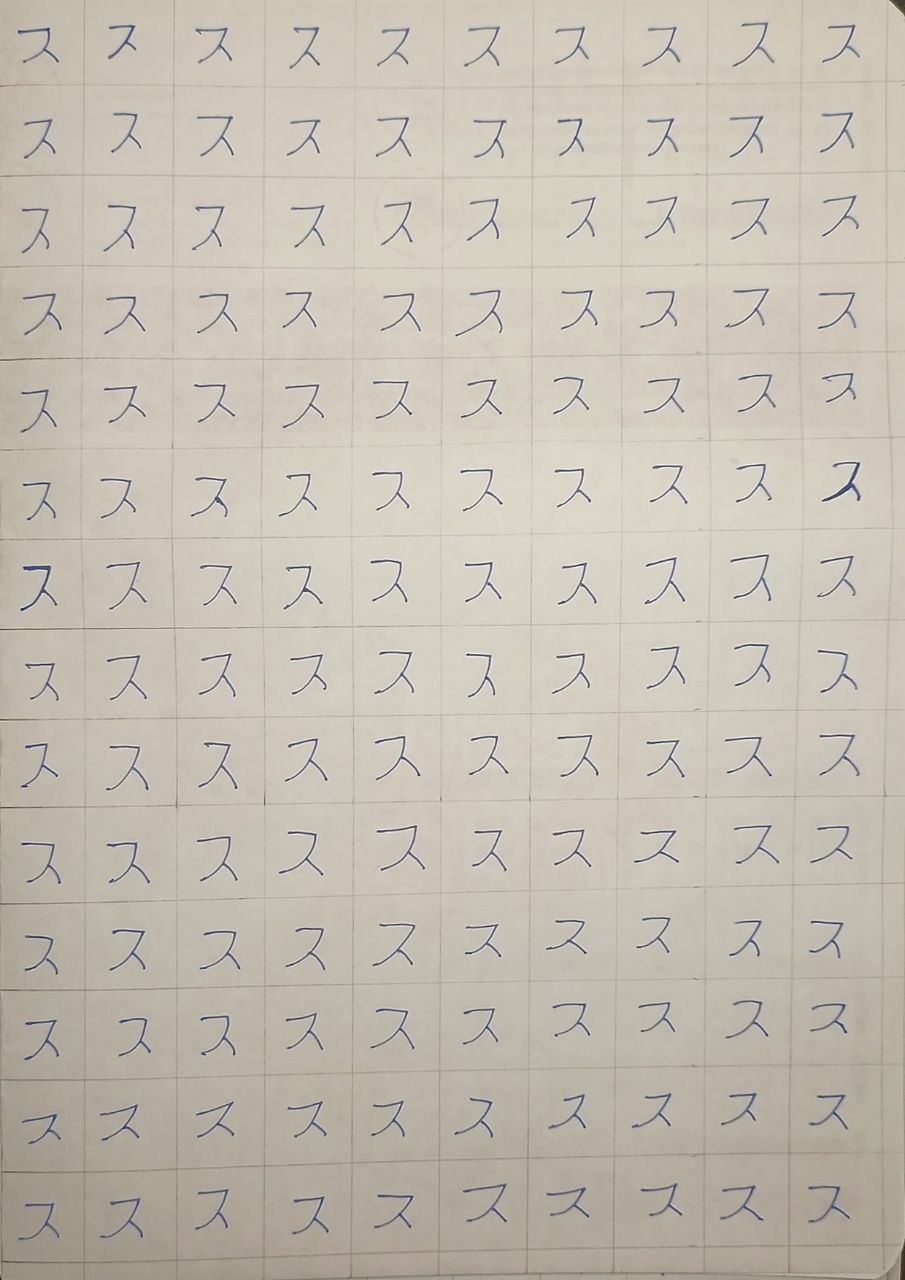 ス ス ス ス ス ス ス ス ス ス
ス ス ス ス ス ス ス ス ス ス
ス ス ス ス ス ス ス ス ス ス
ス ス ス ス ス ス ス ス ス ス
ス ス ス ス ス ス ス ス ス ス
ス ス ス ス ス ス ス ス ス ス
ス ス ス ス ス ス ス ス ス ス
ス ス ス ス ス ス ス ス ス ス
ス ス ス ス ス ス ス ス ス ス
ス ス ス ス ス ス ス ス ス ス
ス ス ス ス ス ス ス ス ス ス
ス ス ス ス ス ス ス ス ス ス
ス ス ス ス ス ス ス ス ス ス
ス ス ス ス ス ス ス ス ス ス